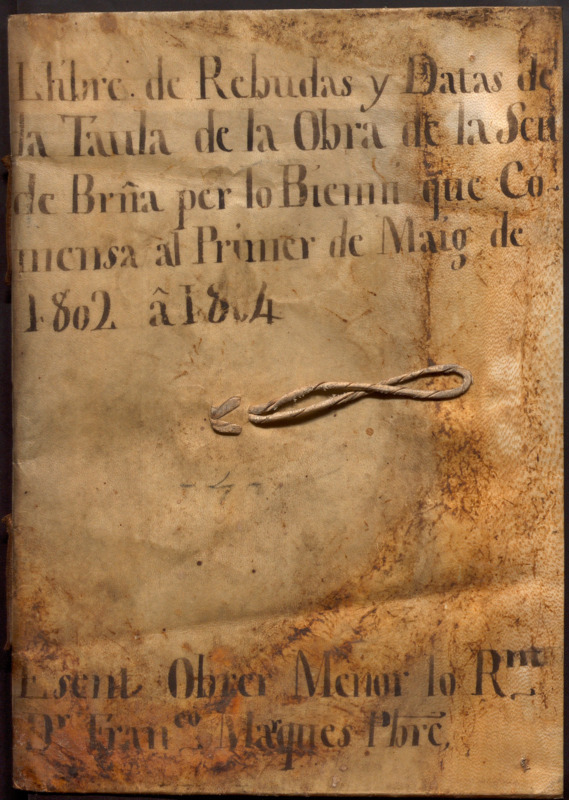 Llibre de Rebudas y Datas de
la Taula de la Obra de la Seu
de Brña per lo Bienni que Co-
mensa al Primer de Maig de
1802 â 1804
Esent Obrer Menor lo R.nt
Dr Franco. Marques Pbre.